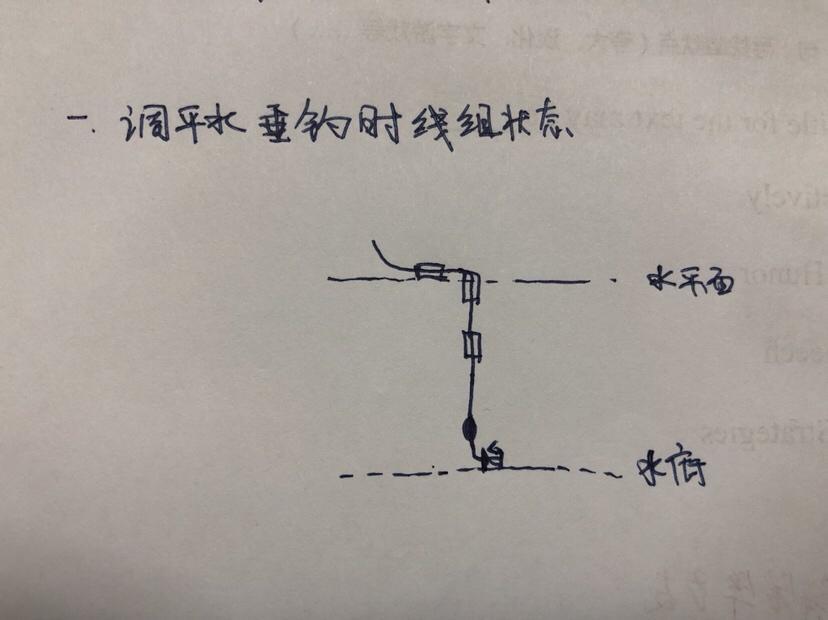 一. 调平水垂钓时线组状态
水平面
水底